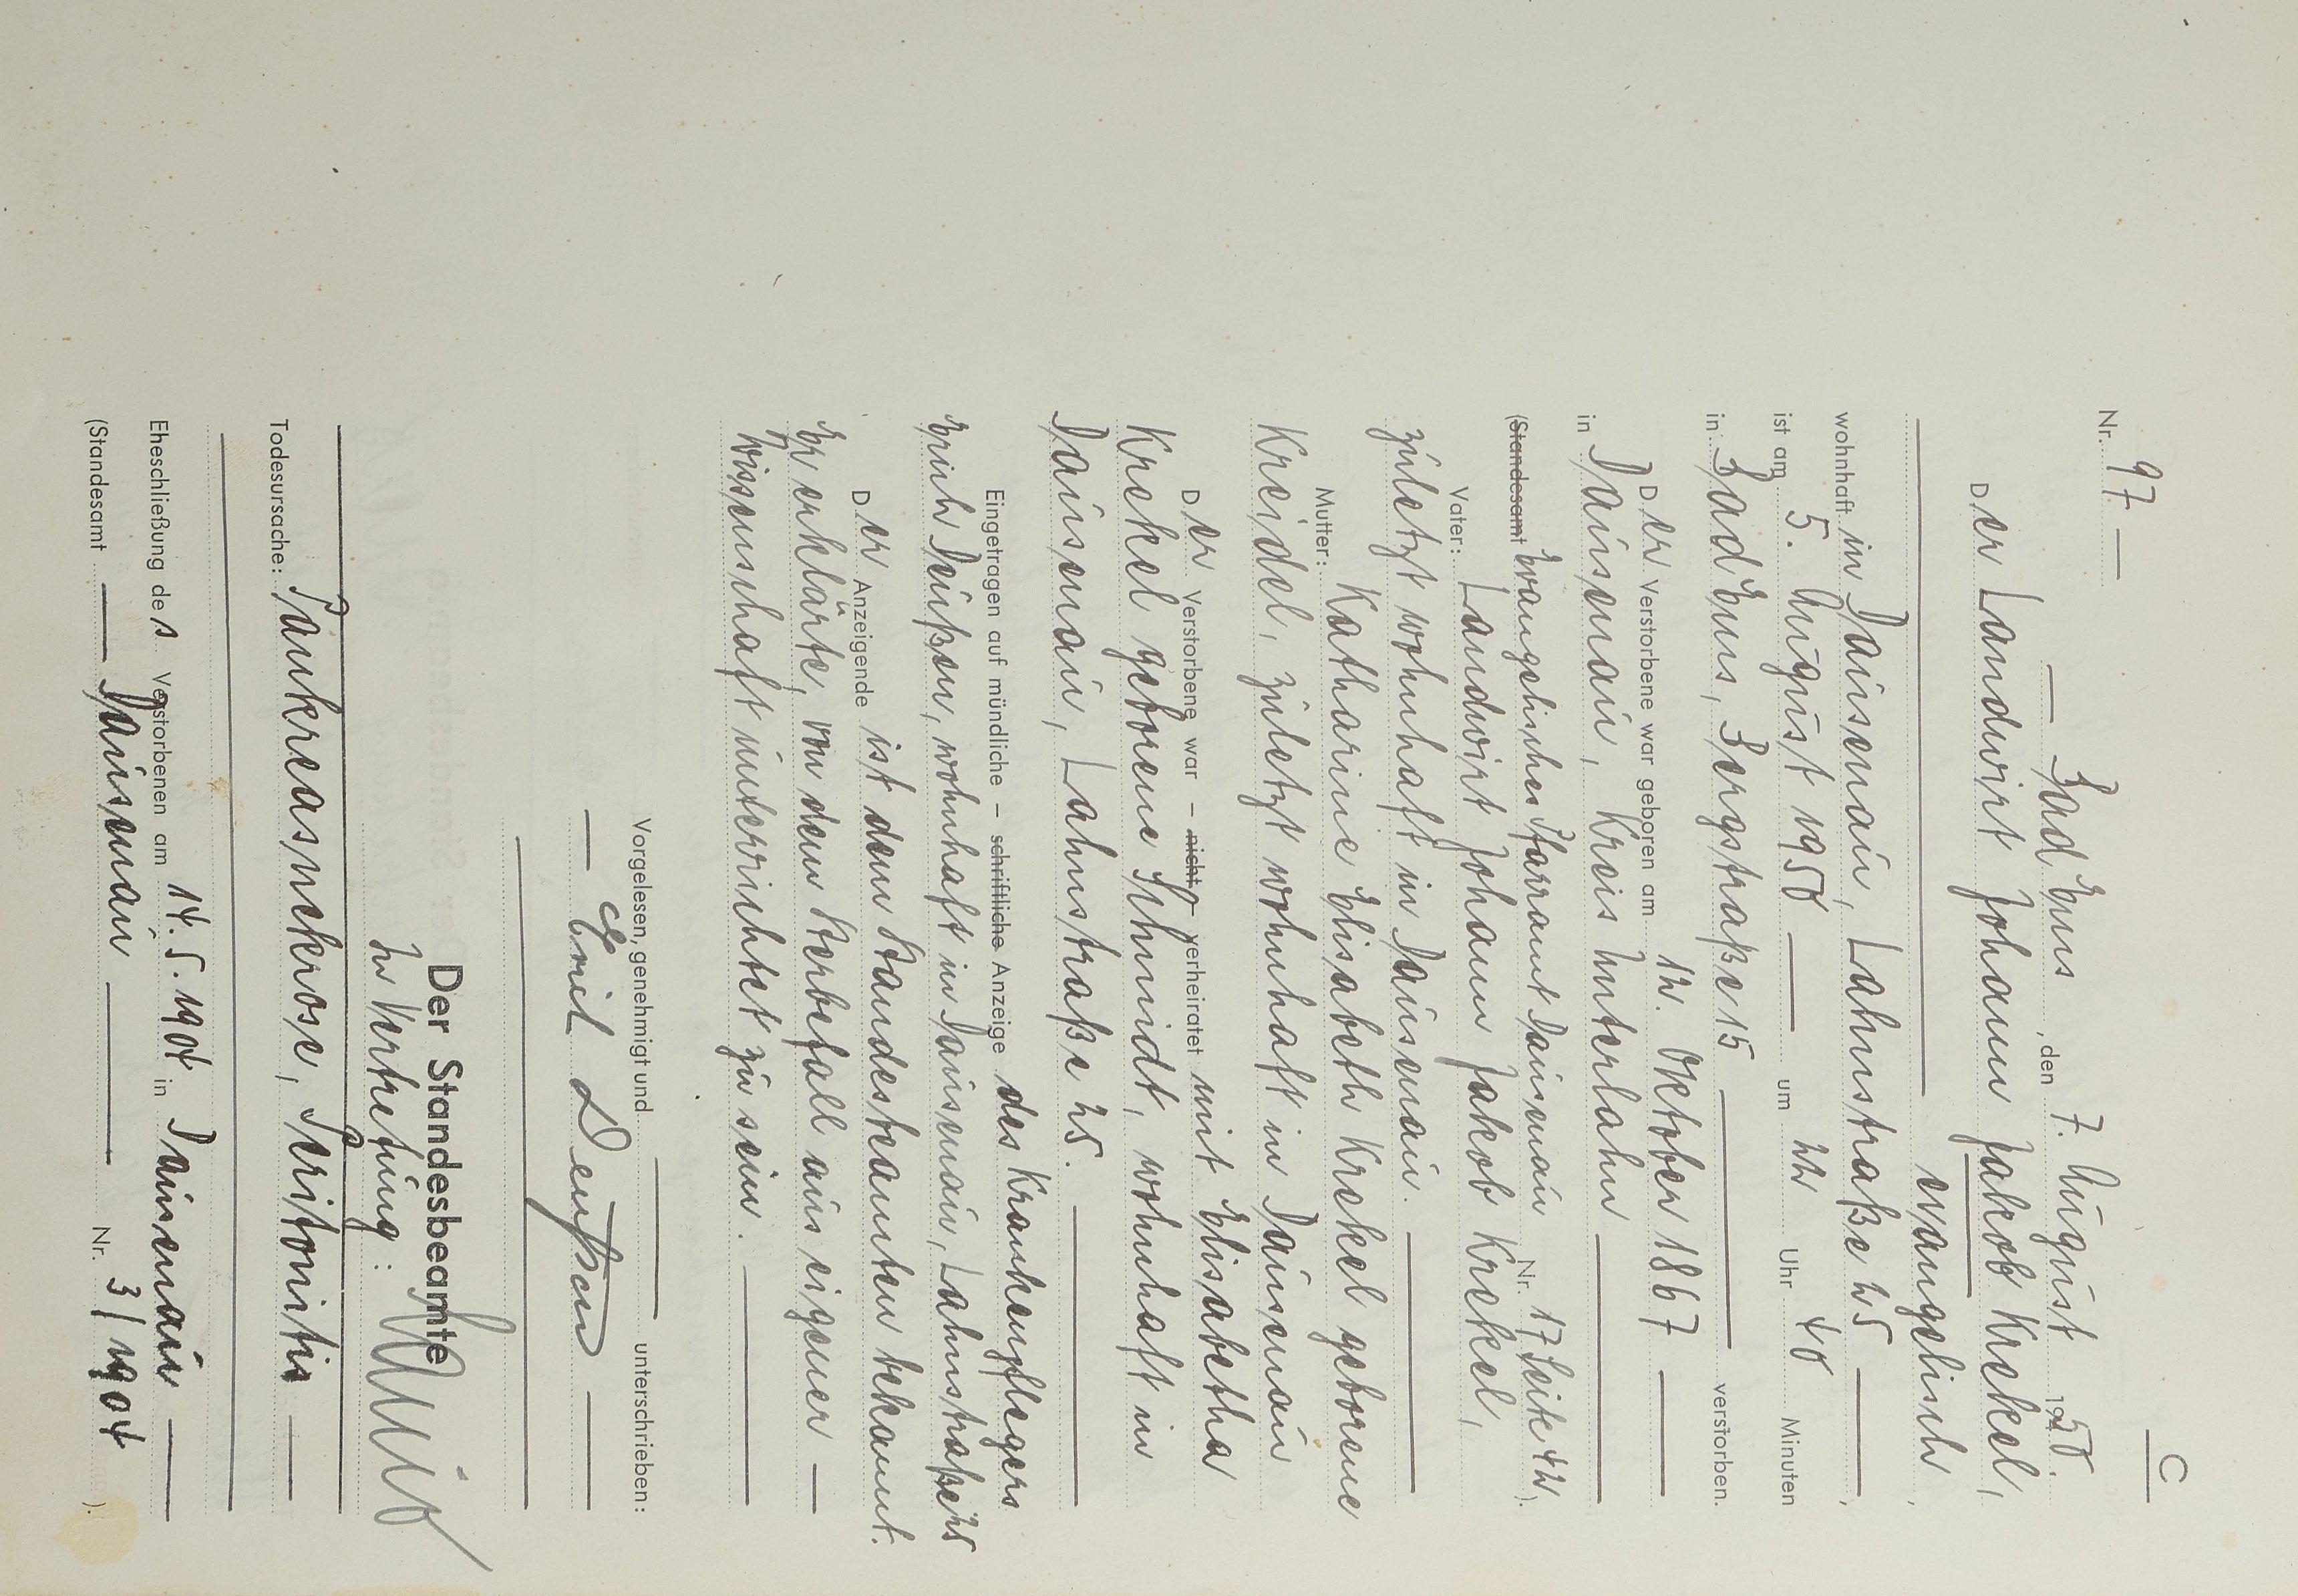 C
Nr. 97 —
— Bad Ems, den 7. August 1950.
Der Landwirt Johann Jakob Krekel,
— evangelisch,
wohnhaft in Dausenau, Lahnstraße 25 —,
ist am 5. August 1950 — um 22 Uhr 40 Minuten
in Bad Ems, Bergstraße 15 — verstorben.
Der Verstorbene war geboren am 12. Oktober 1867 —
in Dausenau, Kreis Unterlahn —
(Standesamt Evangelisches Pfarramt Dausenau Nr. 17 Seite 42).
Vater: Landwirt Johann Jakob Krekel,
zuletzt wohnhaft in Dausenau. —
Mutter: Katharine Elisabeth Krekel geborene
Kreidel, zuletzt wohnhaft in Dausenau
Der Verstorbene war – nicht – verheiratet mit Elisabetha
Krekel geborene Schmidt, wohnhaft in
Dausenau, Lahnstraße 25. —
Eingetragen auf mündliche – schriftliche Anzeige des Krankenpflegers
Erich Deußen, wohnhaft in Dausenau, Lahnstraße 25
Der Anzeigende ist dem Standesbeamten bekannt.
Er erklärte, von dem Sterbefall aus eigener —
Wissenschaft unterrichtet zu sein. —
Vorgelesen, genehmigt und — unterschrieben:
— Erich Deußen —
Der Standesbeamte
In Vertretung:
Todesursache: Pankreasnekrose, Peritonitis —
Eheschließung des Verstorbenen am 14.5.1904 in Dausenau —
(Standesamt — Dausenau — Nr. 3/1904).